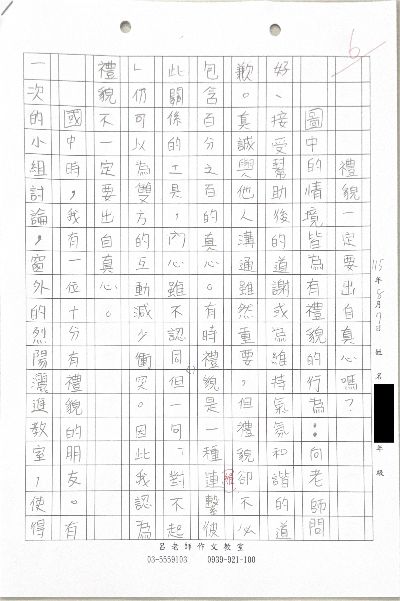 6
115年8月7日 姓名 年級
禮貌一定要出自真心嗎？
圖中的情境皆為有禮貌的行為：向老師問
好、接受幫助後的道謝或為維持氣氛和諧的道
歉。真誠與他人溝通雖然重要，但禮貌卻不必
包含百分之百的真心。有時禮貌是一種連繫彼
此關係的工具，內心雖不認同但一句「對不起
」仍可以為雙方的互動減少衝突。因此，我認為
禮貌不一定要出自真心。
國中時，我有一位十分有禮貌的朋友。有
一次的小組討論，窗外的烈陽灑進教室，使得
呂老師作文教室
03-5559103 0939-921-100